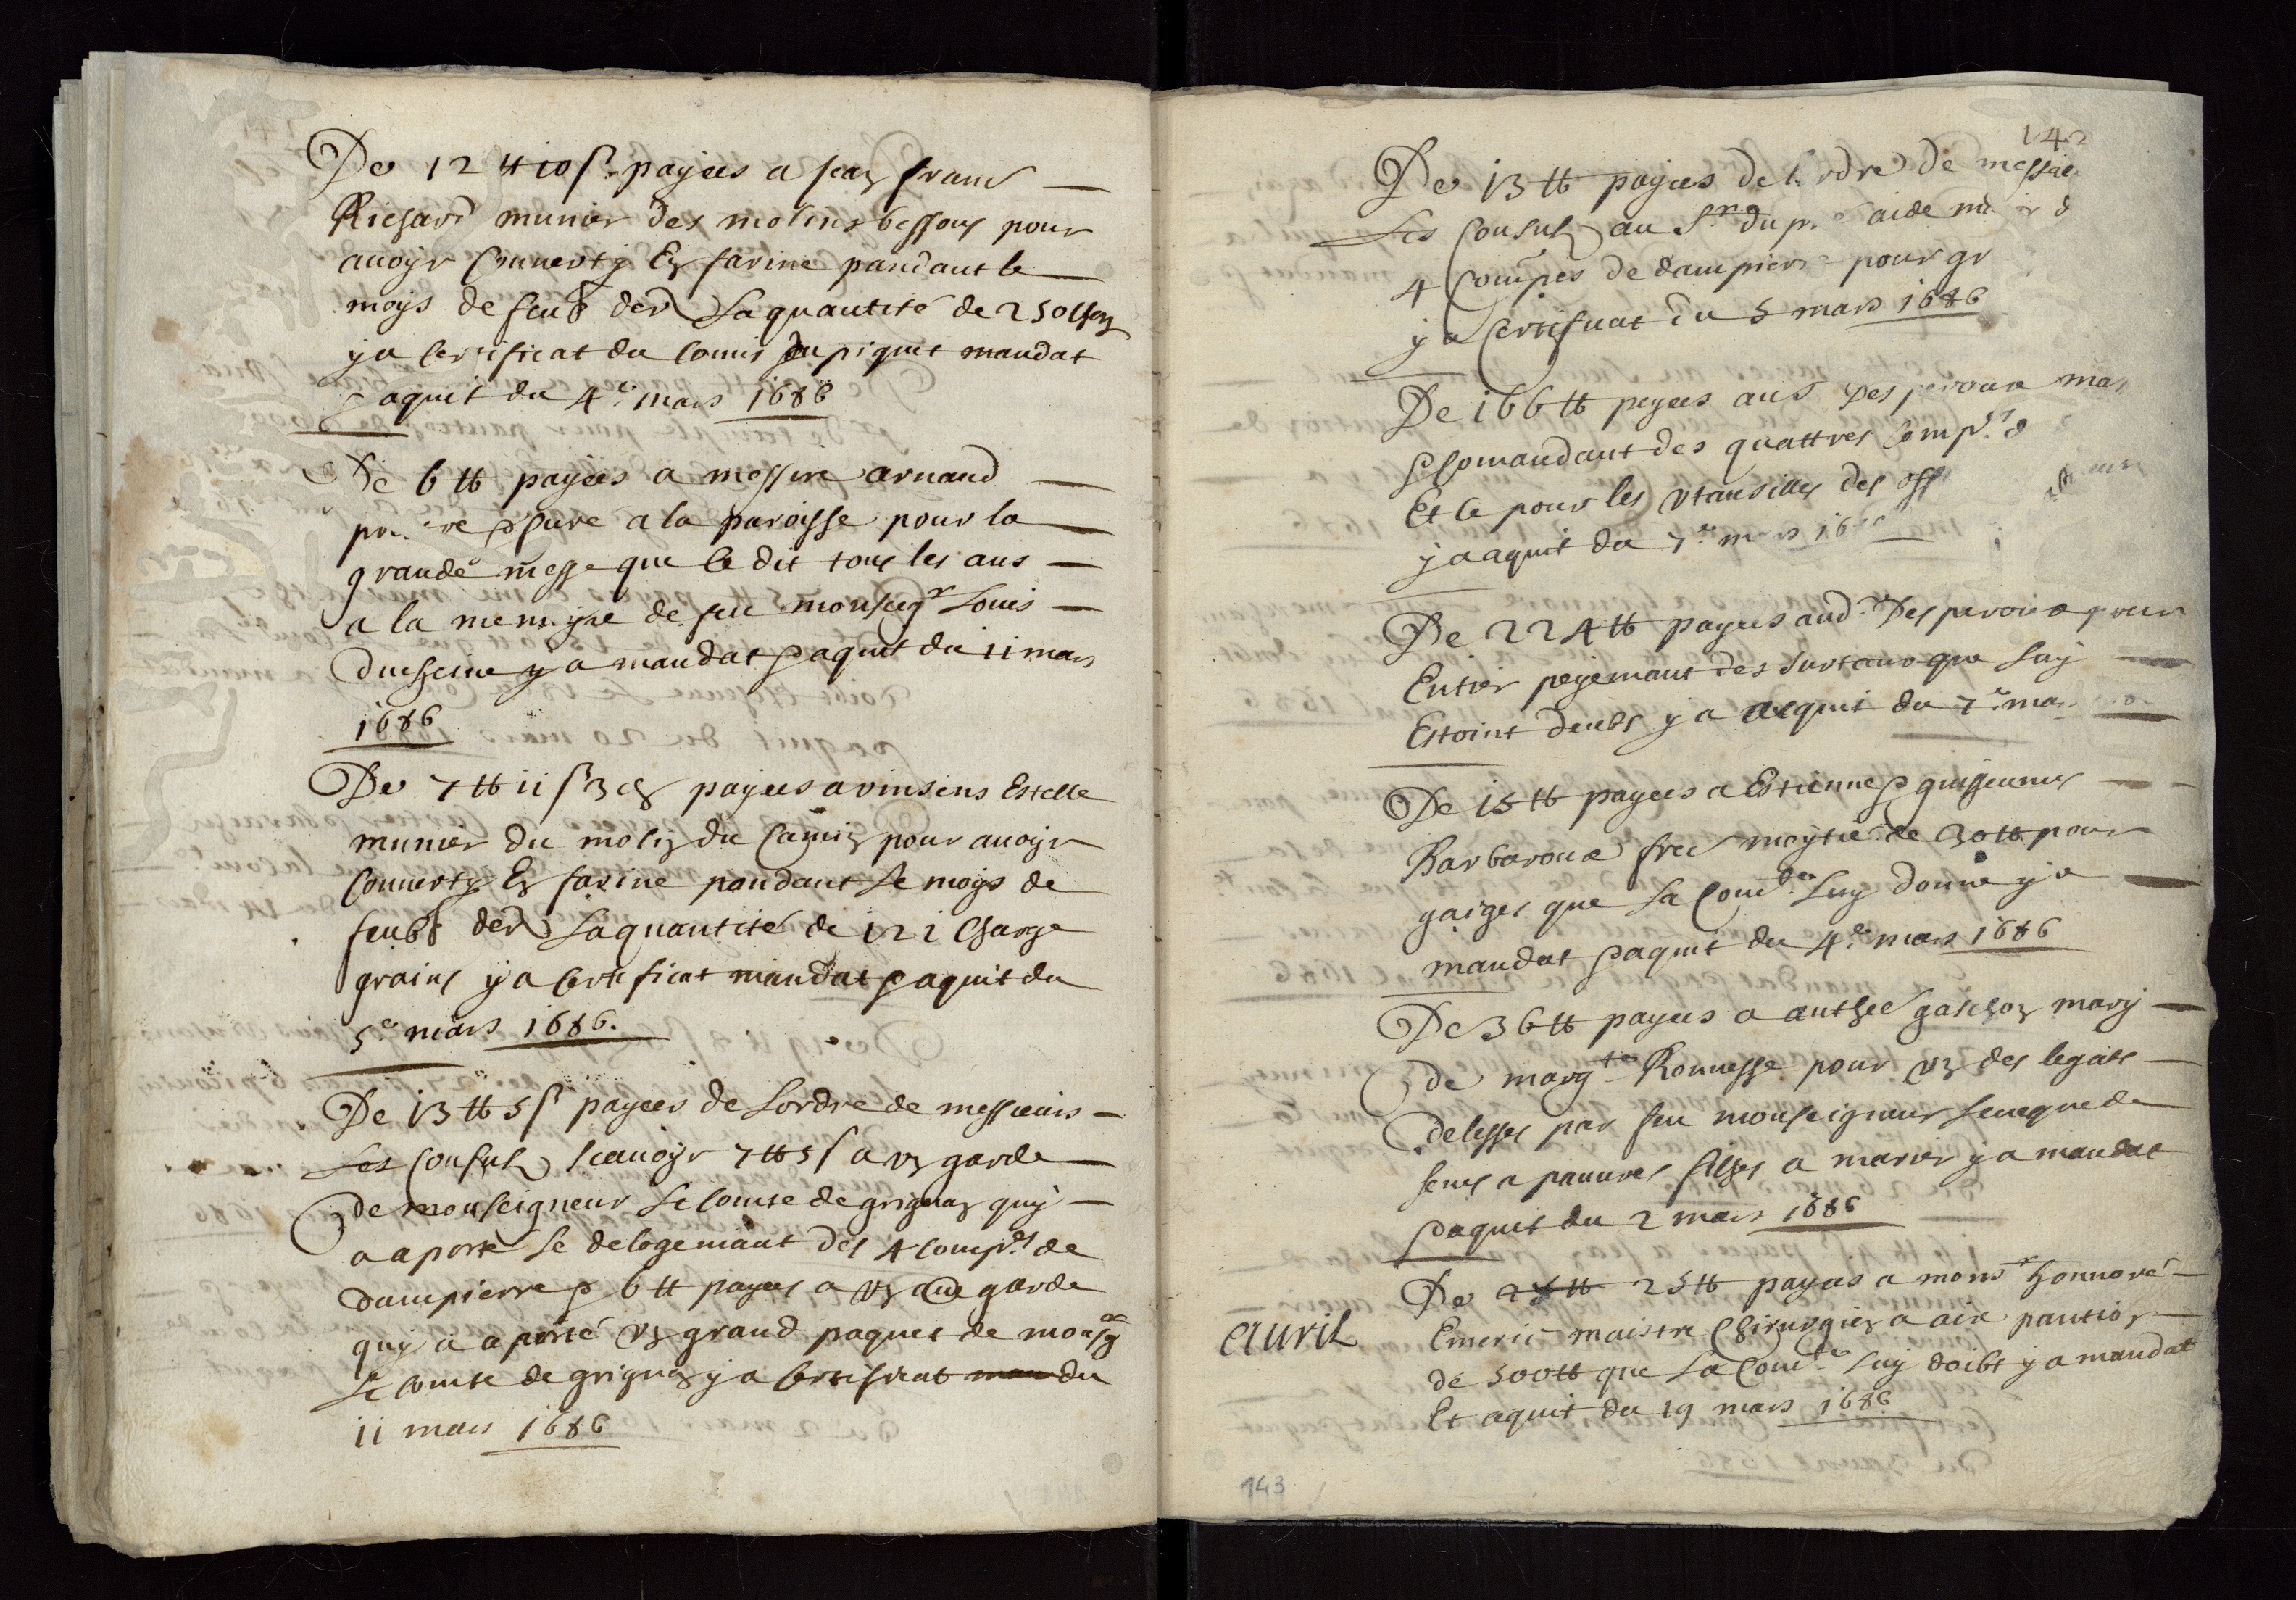 De 12 tt 10 s. payees a jean franc
Richard munier des molins bessons pour
avoyr converty En farine pandant le
moys de feub der La quantité de 250 chon
y a certificat du comis du piquet mandat
& aquit du 4e mars 1686
De 6 tt payees a messire arnaud
cure a la paroisse pour la
grande messe que le dit tous les ans
a la memoyre de feu monseigr Louis
duchaine y a mandat & aquit du 11 mars
1686
De 7 tt 11 s 3 d payees a vinsens Estelle
munier du molin du Camin pour avoyr
converty En farine pandant le moys de
feubr der La quantité de 121 Charge
grains y a Certificat mandat & aquit du
5e mars 1686.
De 13 tt 5 s payees de Lordre de messieurs
Les Consuls scavoyr 7 tt 5 s a un garde
de monseigneur Le Comte de grignan quy
a aporte le delogemant des 4 comps de
dampierre & 6 tt payees a un garde
quy a aporté un grand paquet de monsg
Le comte de grignan y a Certificat du
11 mars 1686
142
De 13 tt payees de lordre de messie
Les Consuls au Sr aide
4 Compes de dampierre pour gr
y a Certificat du 5 mars 1686
De 166 tt payees aud Desperoux
& Comandant des quattres Comps d
Et le pour les utansilles des off
y a aquit du 7e mars
De 224 tt payees aud. Desperoux pour
Entier peyemant des surtaux que luy
Estoint deubs y a acquit du 7e mars
De 15 tt payees a Estienne & guilheumes
Barbaroux fres moytié de 30 tt pour
gaiges que La Comte Luy donne y a
mandat & aquit du 4e mars 1686
De 36 tt payees a anthoe gaschon mary
de margte Ronnesse pour un des legats
delesses par feu monseigneur levequede
senes a pauvres filhes a marier y a mandat
& aquit du 2 mars 1686
avril
De 28 tt 25 tt payees a monsr honnoré
Emeric maistre Chirurgien a aix pantion
de 500 tt que La Comte luy doibt y a mandat
Et aquit du 19 mars 1686
143